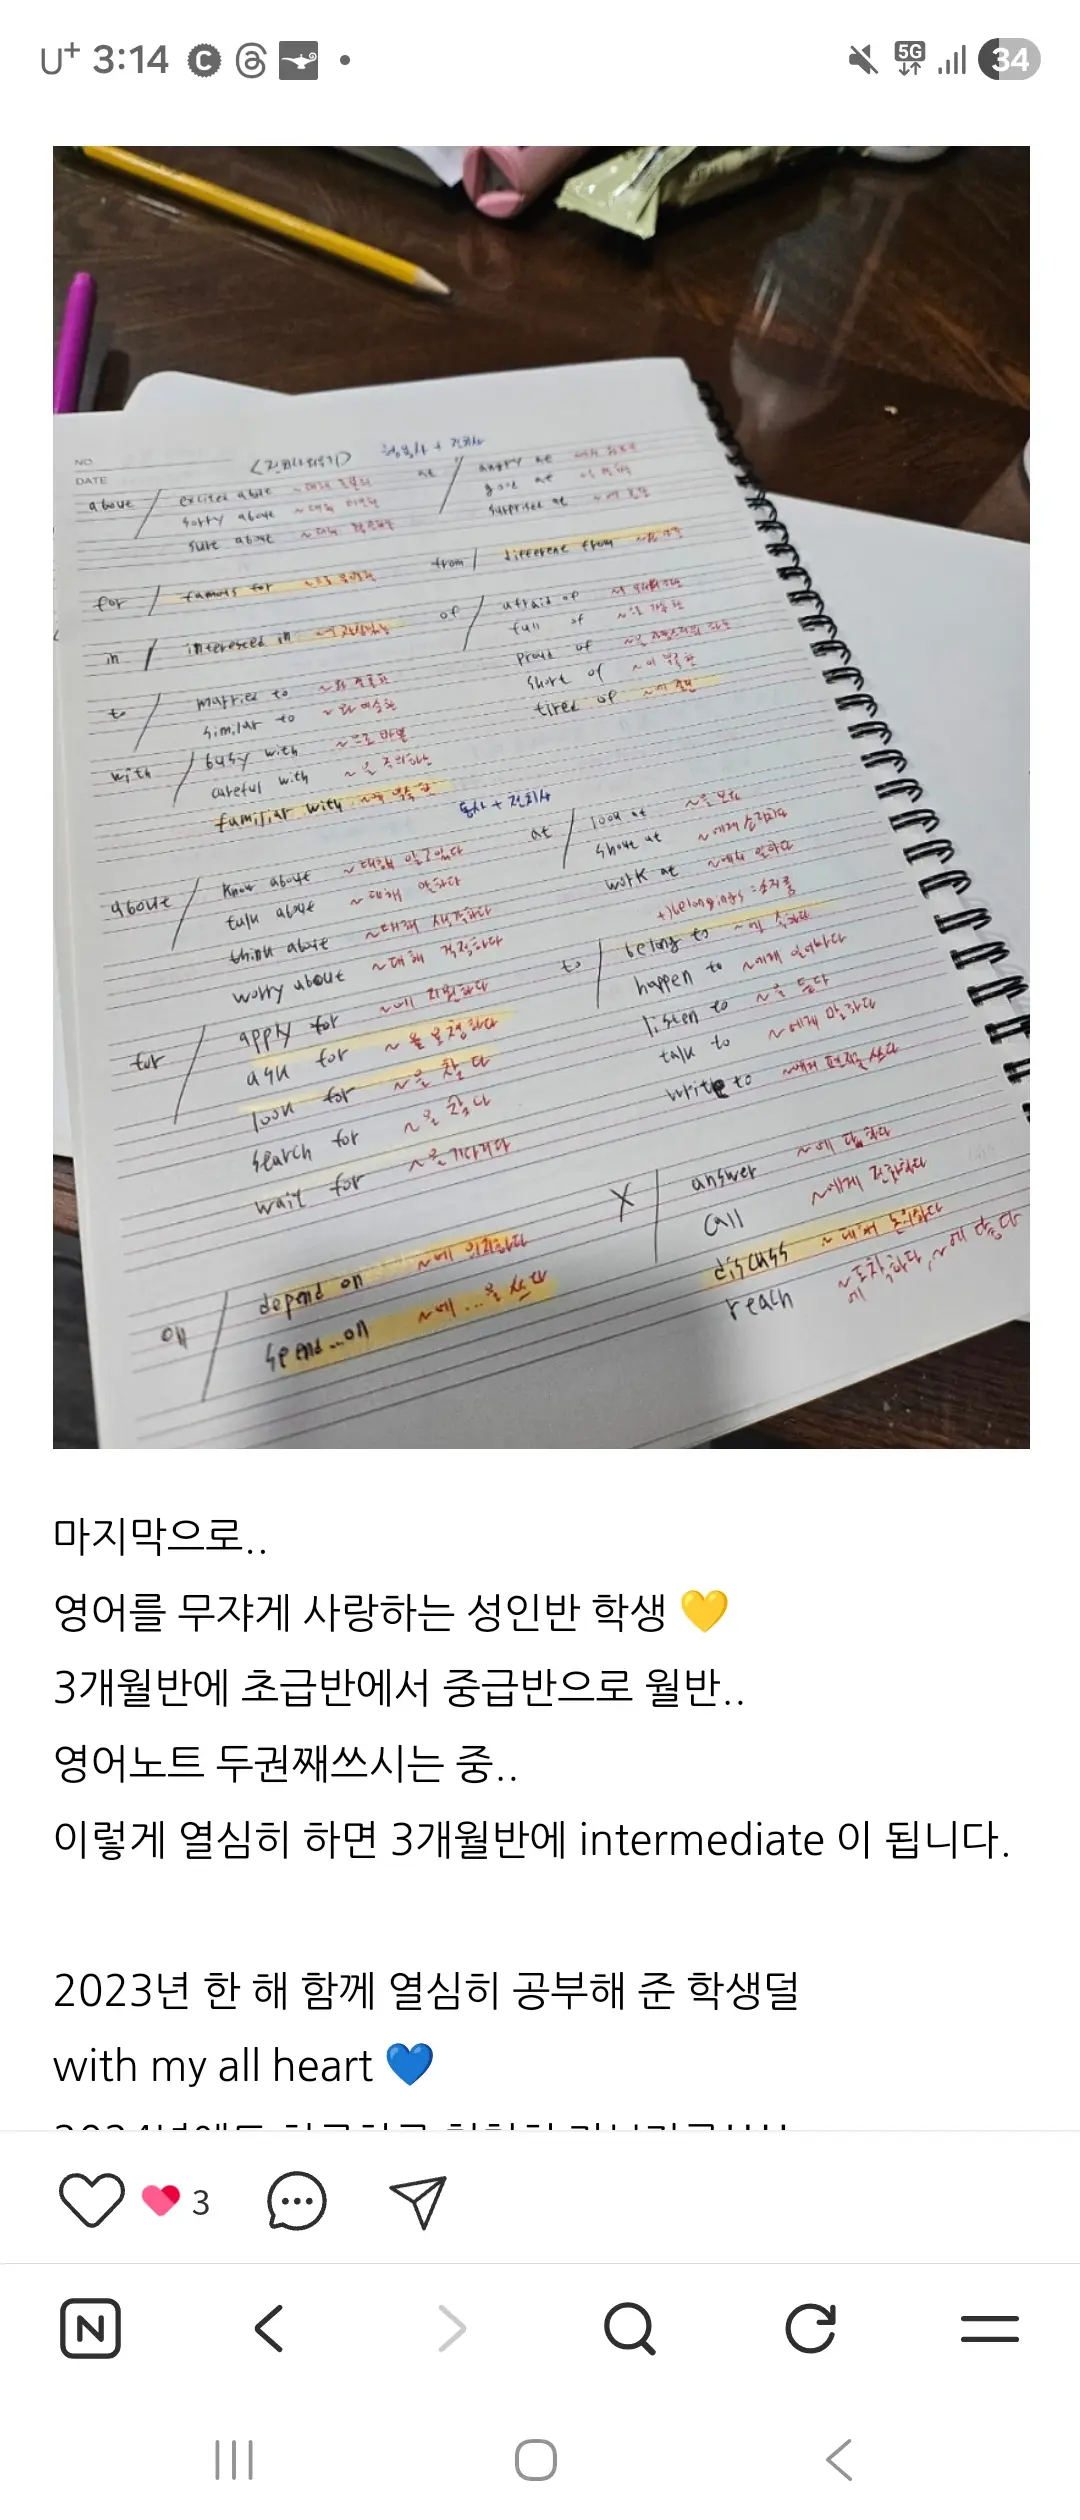 U+ 3:14
5G 34
NO.
DATE
<전치사외우기> 형용사 + 전치사
about / excited about ~대해
sorry about ~대해
sure about ~대해
at / angry at
good at
surprised at ~에
for / famous for ~로
from / different from ~와
in / interested in
of / afraid of
full of ~로 가득한
proud of ~을 자랑스러워 하는
short of ~이 부족한
tired of
to / married to ~와 결혼한
similar to ~와 비슷한
with / busy with ~으로 바쁜
careful with ~을 주의하는
familiar with
동사 + 전치사
about / know about ~대해 알고있다
talk about ~대해 말하다
think about ~대해 생각하다
worry about ~대해 걱정하다
at / look at ~을 보다
shout at ~에게 소리치다
work at ~에서 일하다
+)belongings : 소지품
to / belong to ~에 속하다
happen to ~에게 일어나다
listen to ~을 듣다
talk to ~에게 말하다
write to ~에게 편지를 쓰다
for / apply for ~에 지원하다
ask for ~을 요청하다
look for ~을 찾다
search for ~을 찾다
wait for ~을 기다리다
X / answer ~에 답하다
call ~에게 전화하다
discuss ~대해 논의하다
reach ~에 도착하다, ~에 닿다
on / depend on ~에 의지하다
spend...on ~에 ...을 쓰다
마지막으로..
영어를 무쟈게 사랑하는 성인반 학생 💛
3개월반에 초급반에서 중급반으로 월반..
영어노트 두권째쓰시는 중..
이렇게 열심히 하면 3개월반에 intermediate 이 됩니다.
2023년 한 해 함께 열심히 공부해 준 학생덜
with my all heart 💙
3